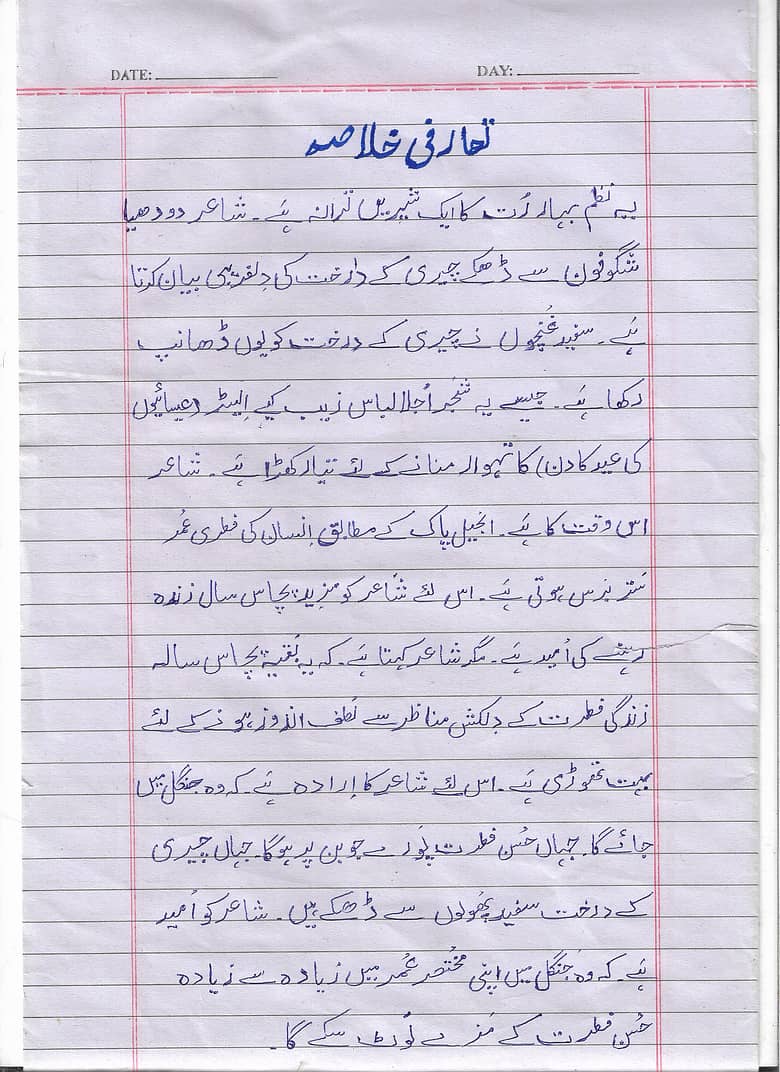 DATE: DAY:
تعارفی خلاصہ
یہ نظم بہار رُت کا ایک شیریں ترانہ ہَے۔ شاعر دودھیا
شگوفوں سے ڈھکے چیری کے درخت کی دِلفریبی بیان کرتا
ہَے۔ سفید غُنچوں نے چیری کے درخت کو یوں ڈھانپ
رکھا ہَے۔ جیسے یہ شَجر اُجلا لباس زیب کیے اِیسٹر (عیسائیوں
کی عید کا دن) کا تہوار منانے کے لئے تیار کھڑا ہَے۔ شاعر
اس وقت کا ہَے۔ انجیل پاک کے مطابق اِنسان کی فطری عُمر
ستر برس ہوتی ہَے۔ اس لئے شاعر کو مزید پچاس سال زندہ
رہنے کی اُمید ہَے۔ مگر شاعر کہتا ہَے۔ کہ یہ بقیہ پچاس سالہ
زندگی فطرت کے دِلکش مناظر سے لُطف اندوز ہونے کے لئے
بہت تھوڑی ہَے۔ اس لئے شاعر کا اِرادہ ہَے۔ کہ وہ جنگل میں
جائے گا۔ جہاں حُسنِ فطرت پُورے جوبن پر ہوگا۔ جہاں چیری
کے درخت سفید پھُولوں سے ڈھکے ہیں۔ شاعر کو اُمید
ہَے۔ کہ وہ جَنگل میں اپنی مُختصر عُمر میں زیادہ سے زیادہ
حُسن فطرت کے مَزے لُوٹ سکے گا۔